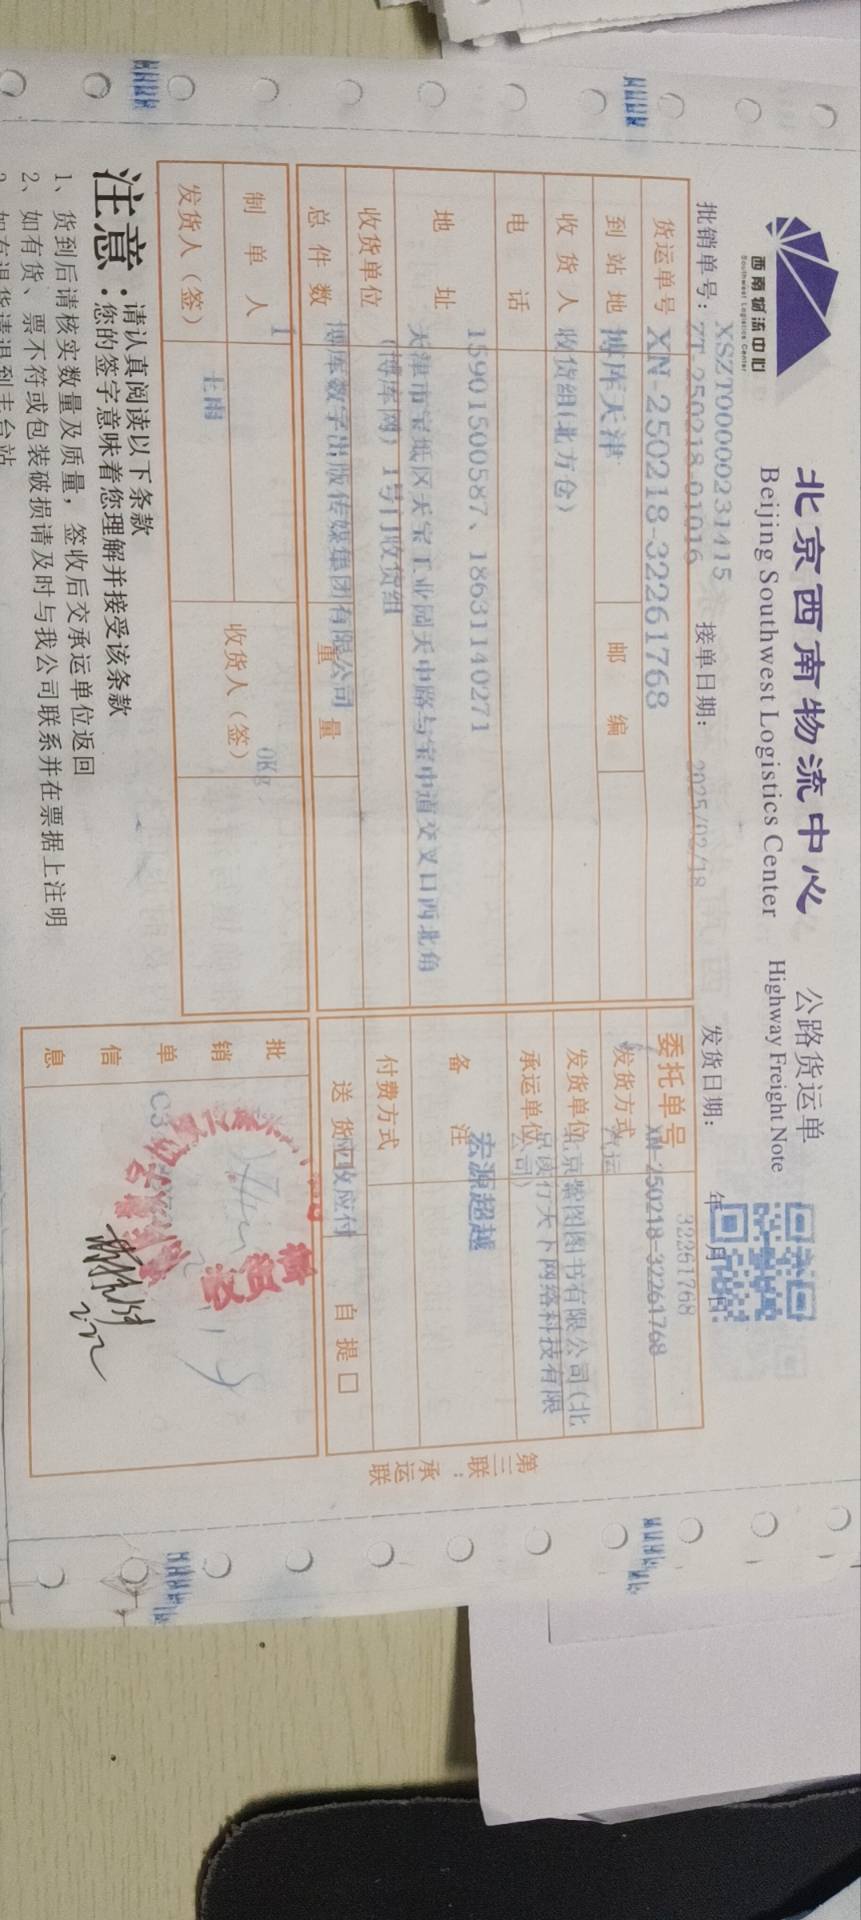 西南物流中心
Southwest Logistics Center
北京西南物流中心 公路货运单
Beijing Southwest Logistics Center Highway Freight Note
XSZT00000231415
批销单号: ZT-250218-01016 接单日期: 2025/02/18 发货日期: 年 月 日
32261768
货运单号 XN-250218-32261768 委托单号 XN-250218-32261768
到站地 博库天津 邮编 发货方式 汽运
收货人 收货组(北方仓) 发货单位 北京紫图图书有限公司(北
电话 承运单位 天下网络科技有限
公司)
15901500587、18631140271 备注 宏源超越
地址 天津市宝坻区天宝工业园天中路与宝中道交叉口西北角
(博库网) 1号门收货组 付费方式
收货单位 博库数字出版传媒集团有限公司
总件数 1 重量 0Kg 送货 应收应付 自提 □
制单人 王雨 收货人(签)
发货人(签)
批销单信息
收货
第三联:承运联
注意: 请认真阅读以下条款
您的签字意味着您理解并接受该条款
1、货到后请核实数量及质量,签收后交承运单位返回
2、如有货、票不符或包装破损请及时与我公司联系并在票据上注明
如有退货请退到丰台站